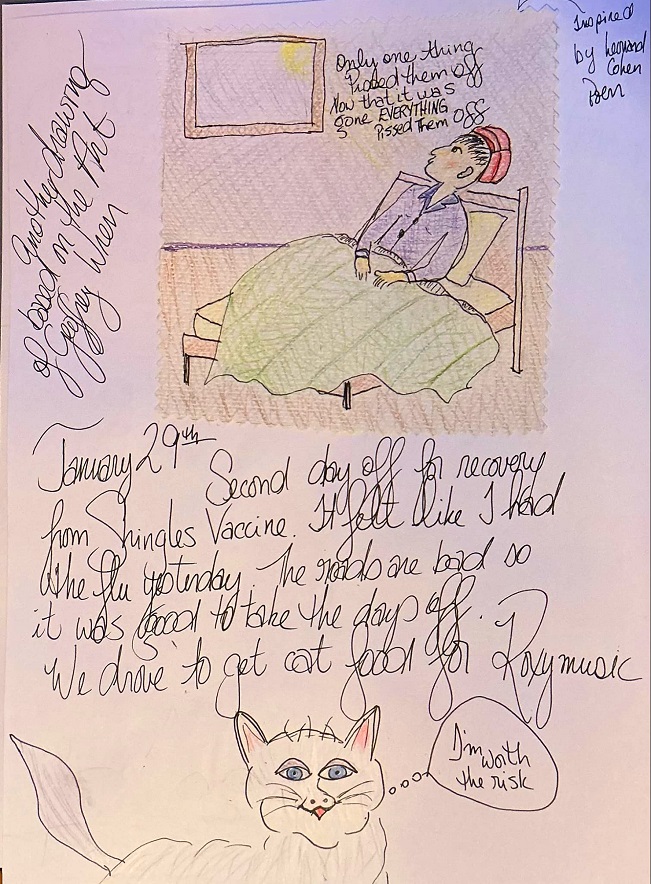 Inspired
by Leonard
Cohen
Poem
Only one thing
Pissed them off
Now that it was
gone EVERYTHING
Pissed Them Off
Another drawing
based on the Art
of Geofrey Wren
January 29th Second day off for recovery
from Shingles Vaccine. It felt like I had
the flu yesterday. The roads are bad so
it was good to take the days off.
We drove to get cat food for Roxymusic
I'm worth
the risk